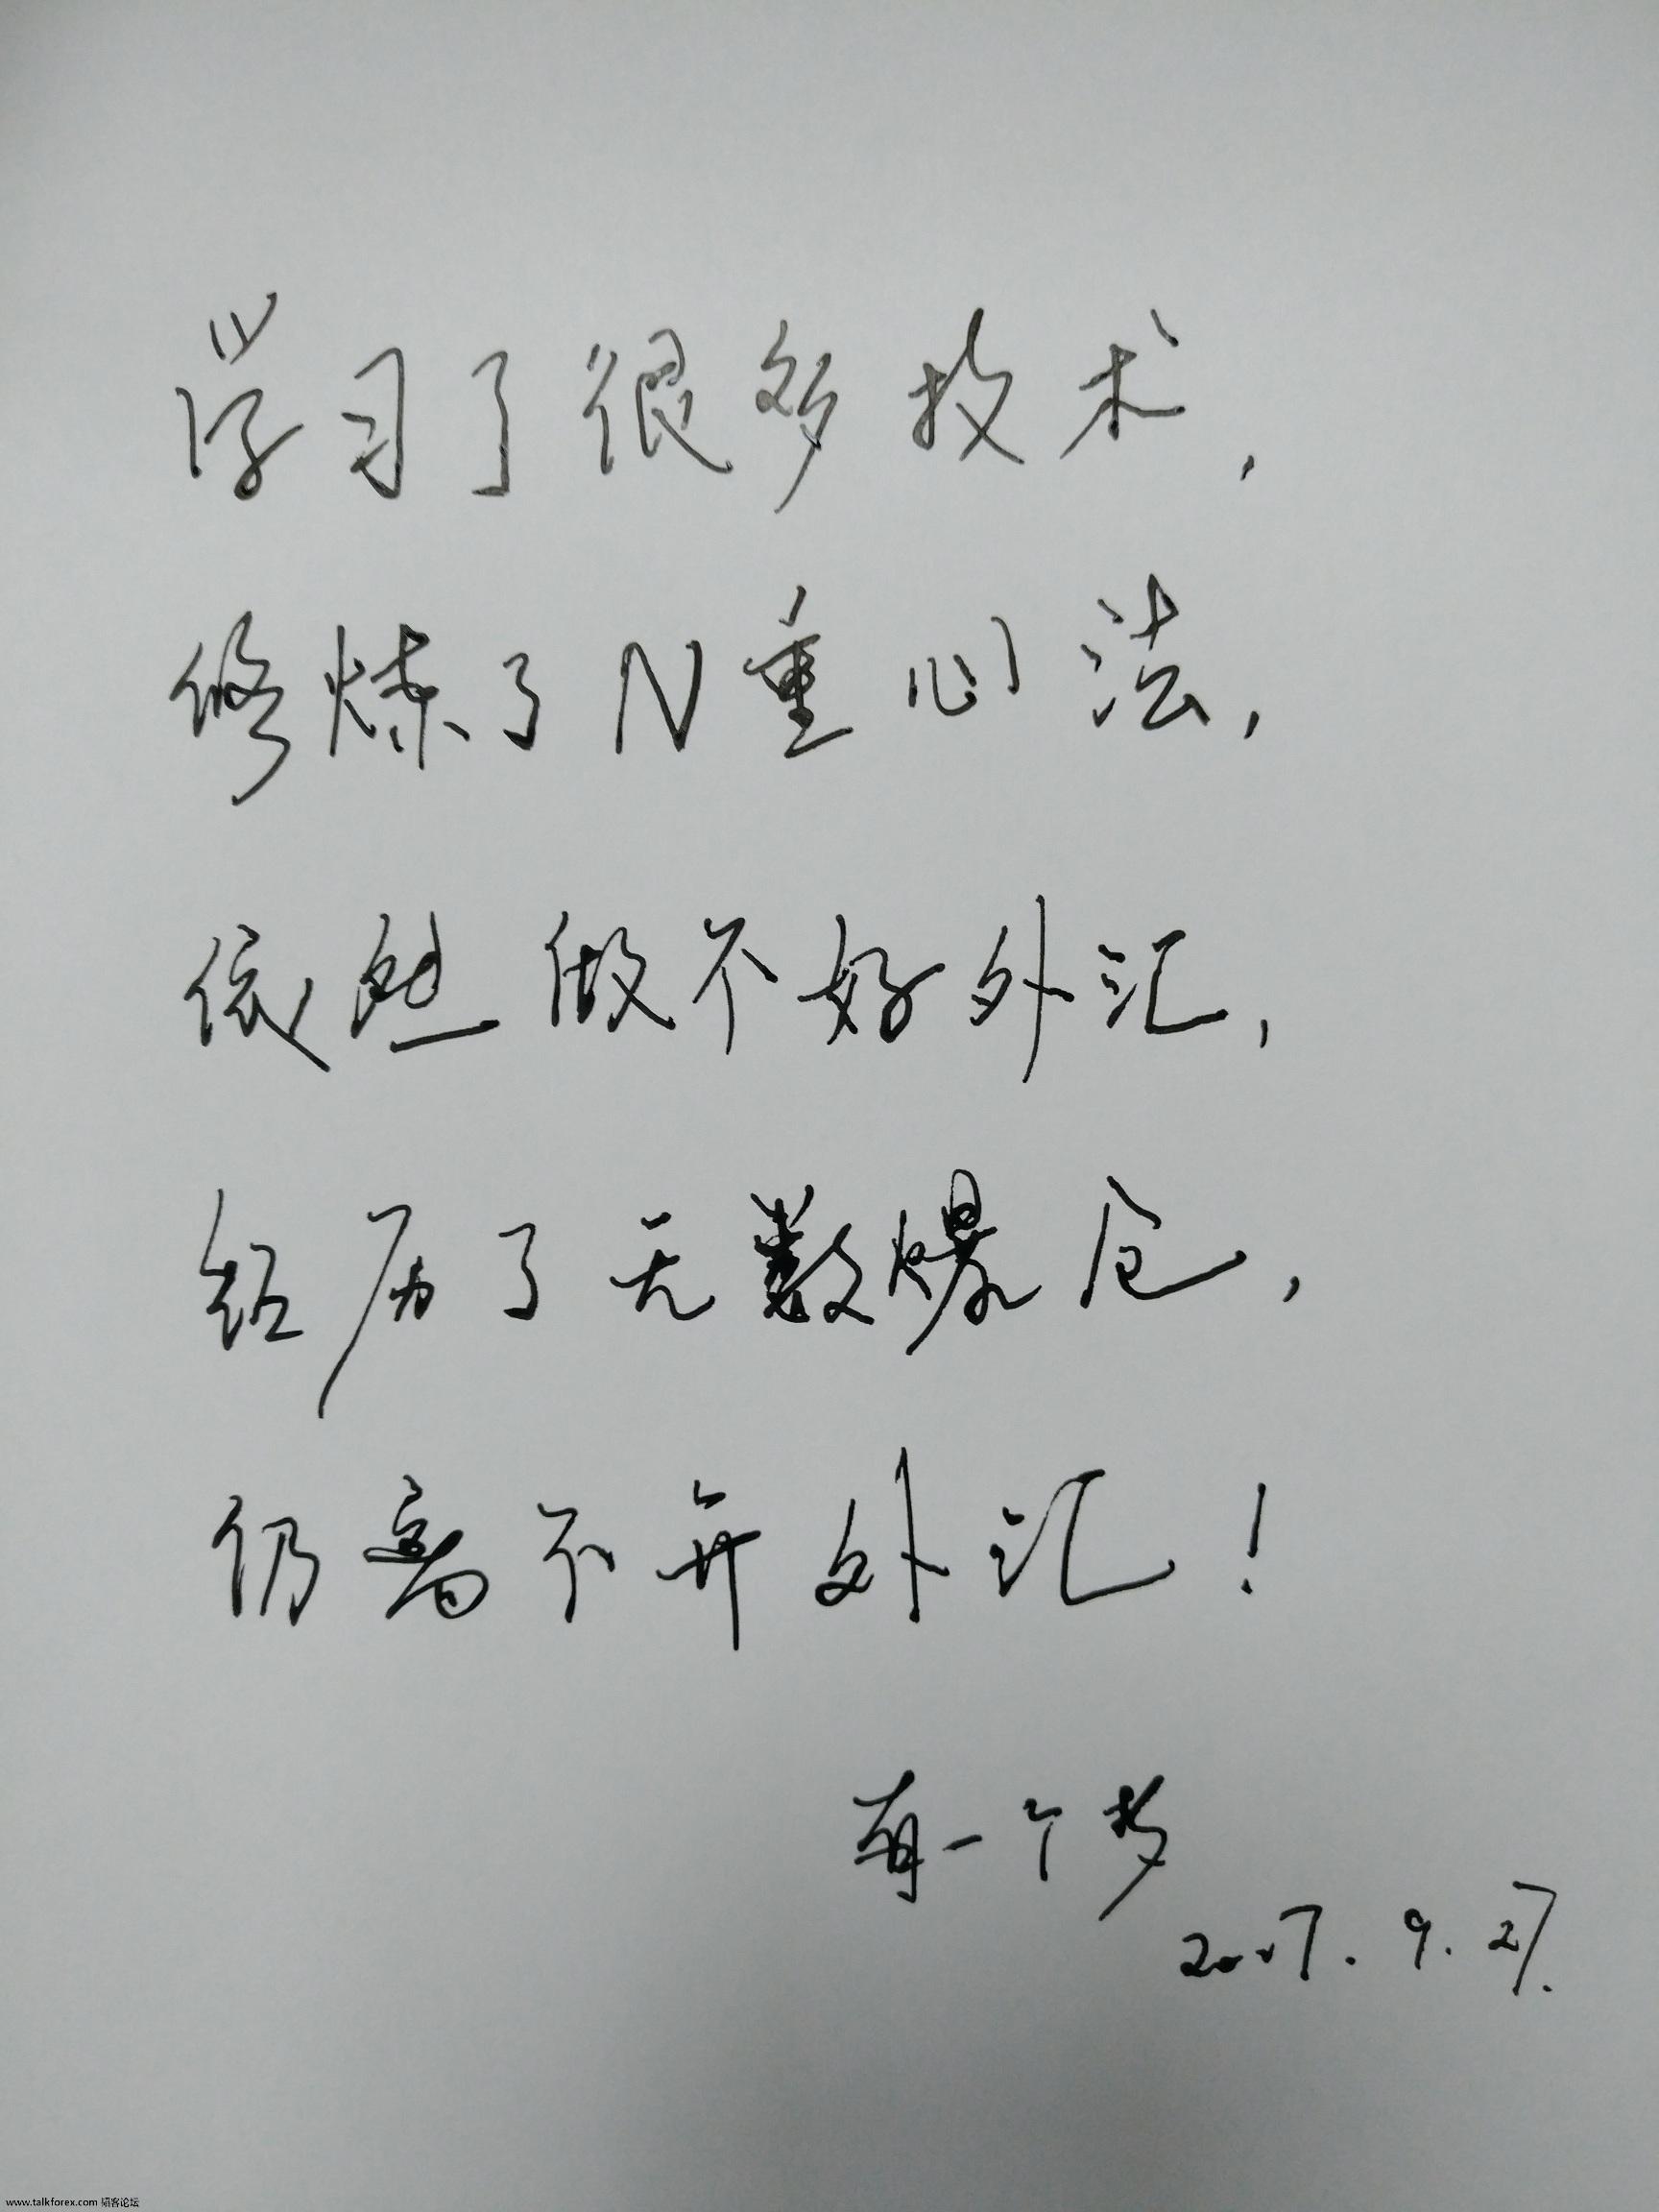 学习了很多技术，
修炼了N重心法，
依然做不好外汇，
经历了无数爆仓，
仍离不开外汇！
有一个梦
2007.9.27.
www.talkforex.com 韬客论坛